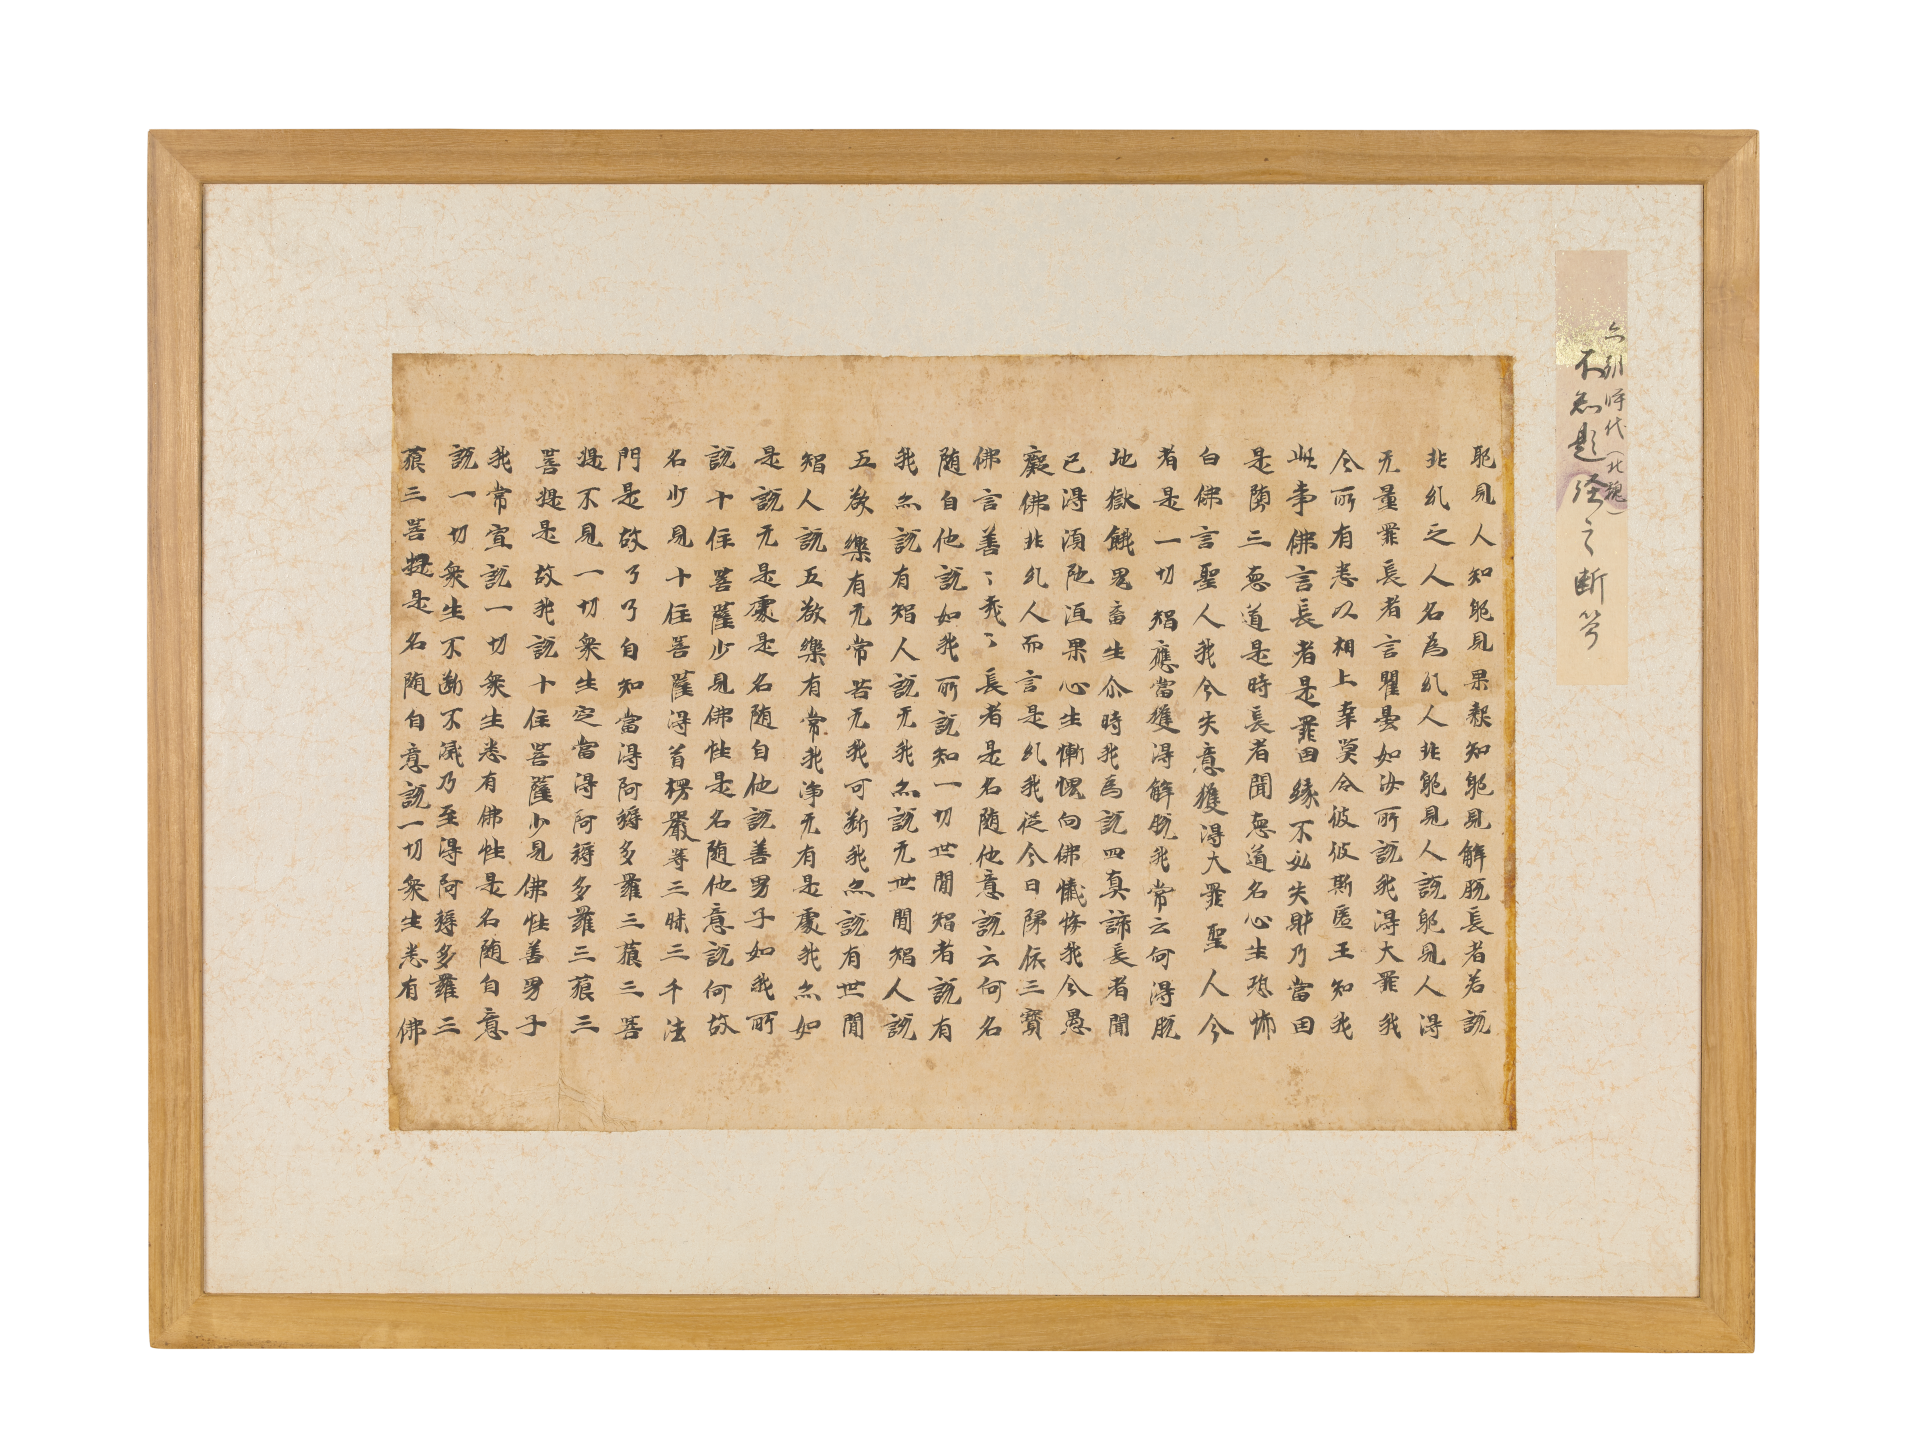 六朝時代(北魏)
不知題経之断簡
耶見人知耶見果報知耶見解脫長者若說
非幻之人名為幻人非耶見人說耶見人得
无量罪長者言瞿曇如汝所說我得大罪我
今所有悉以相上幸莫令彼波斯匿王知我
此事佛言長者是罪因緣不必失財乃當因
是墮三惡道是時長者聞惡道名心生恐怖
白佛言聖人我今失意獲得大罪聖人今
者是一切智應當獲得解脫我常云何得脫
地獄餓鬼畜生尒時我為說四真諦長者聞
已得須陁洹果心生慚愧向佛懺悔我今愚
癡佛非幻人而言是幻我從今日歸依三寶
佛言善〻哉〻長者是名随他意說云何名
随自他說如我所說如一切世間智者說有
我亦說有智人說无我亦說无世間智人說
五欲樂有无常苦无我可断我亦說有世間
智人說五欲樂有常我淨无有是處我亦如
是說无是處是名随自他說善男子如我所
說十住菩薩少見佛性是名随他意說何故
名少見十住菩薩得首楞嚴等三昧三千法
門是故了了自知當得阿耨多羅三藐三菩
提不見一切衆生定當得阿耨多羅三藐三
菩提是故我說十住菩薩少見佛性善男子
我常宣說一切衆生悉有佛性是名随自意
說一切衆生不断不滅乃至得阿耨多羅三
藐三菩提是名随自意說一切衆生悉有佛